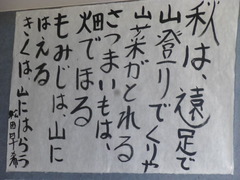 秋は、遠足で
山登りでくりや
山菜がとれる
さつまいもは、
畑でほる
もみじは、山に
はえる
きくは、山にはらう